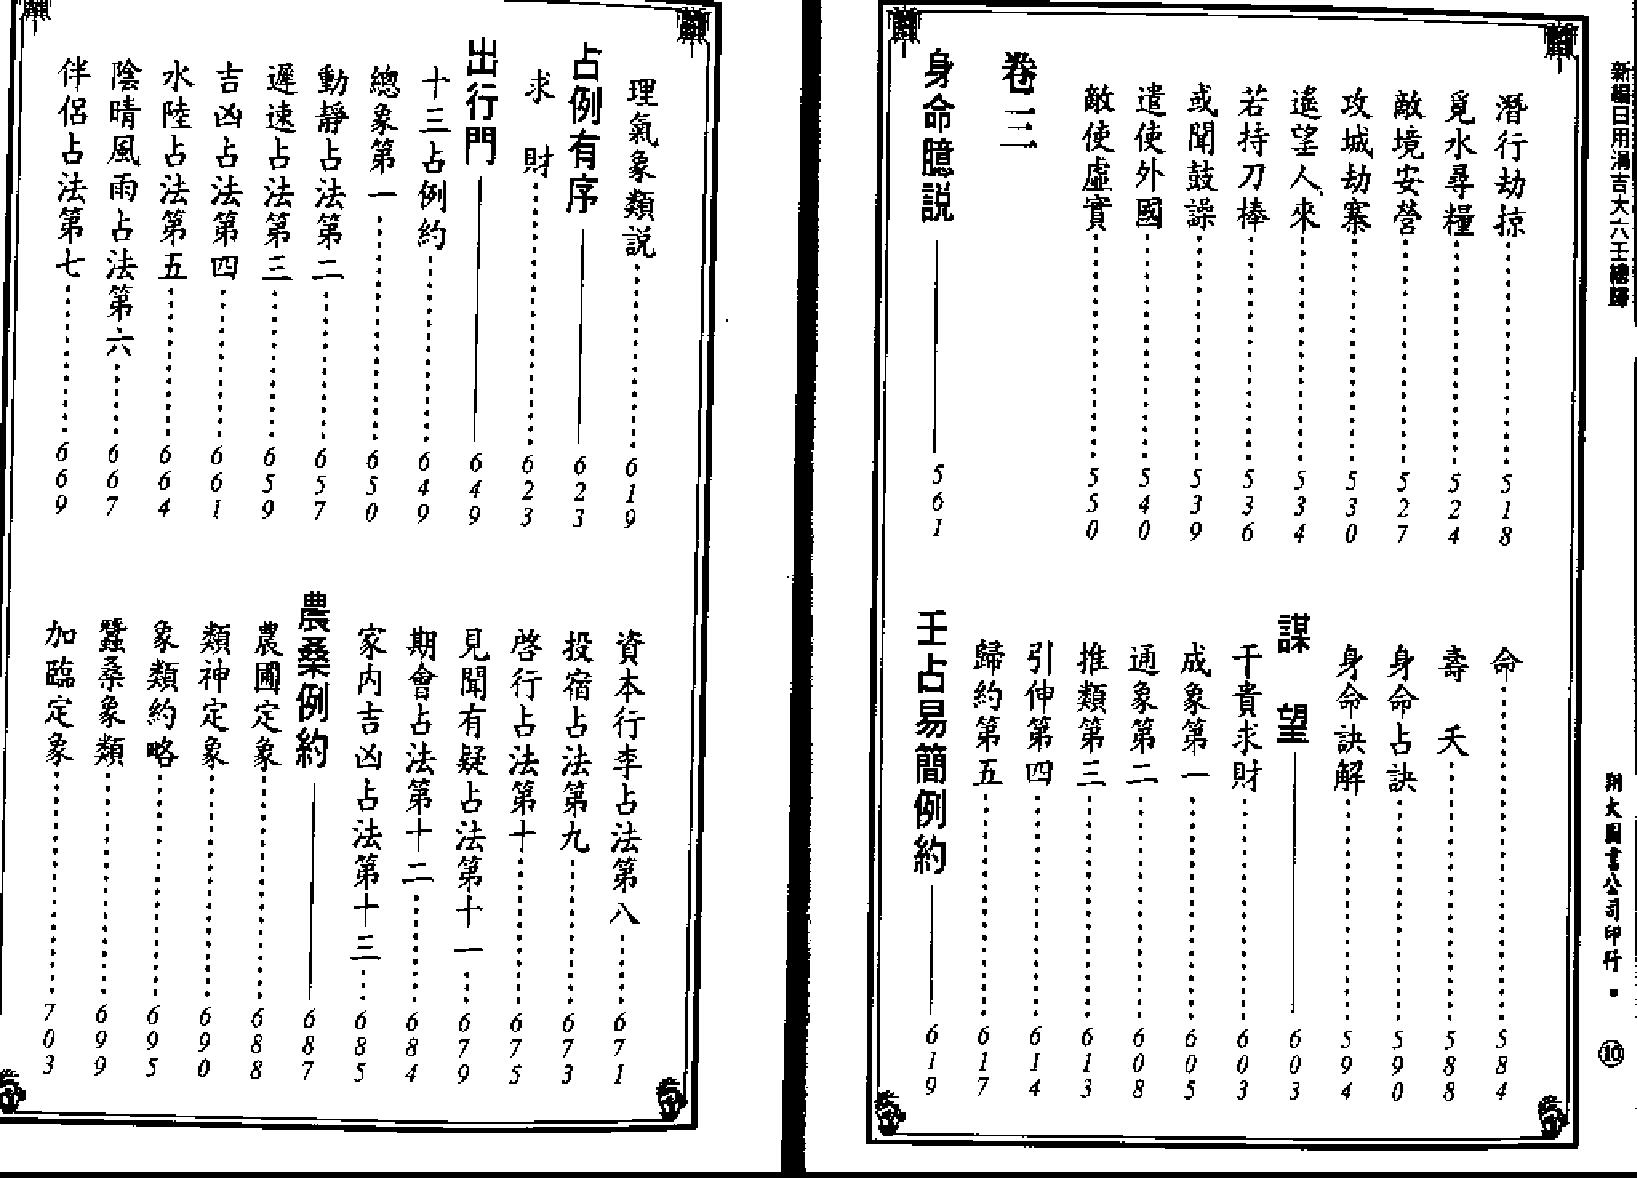 新編日用涓吉大六壬總歸
潛行劫掠 518
覓水尋糧 524
敵境安營 527
攻城劫寨 530
遙望人來 534
若持刀棒 536
或聞鼓譟 539
遣使外國 540
敵使虛實 550
卷三
身命臆説 561
命 584
壽夭 588
身命占訣 590
身命訣解 594
謀望 603
干貴求財 603
成象第一 605
通象第二 608
推類第三 613
引伸第四 614
歸約第五 617
壬占易簡例約 619
翔大圖書公司印行 ▪ ⑩
理氣象類説 619
占例有序 623
求財 623
出行門 649
十三占例約 649
總象第一 650
動靜占法第二 657
遲速占法第三 659
吉凶占法第四 661
水陸占法第五 664
陰晴風雨占法第六 667
伴侶占法第七 669
資本行李占法第八 671
投宿占法第九 673
啓行占法第十 675
見聞有疑占法第十一 679
期會占法第十二 684
家內吉凶占法第十三 685
農桑例約 687
農圃定象 688
類神定象 690
象類約略 695
蠶桑象類 699
加臨定象 703